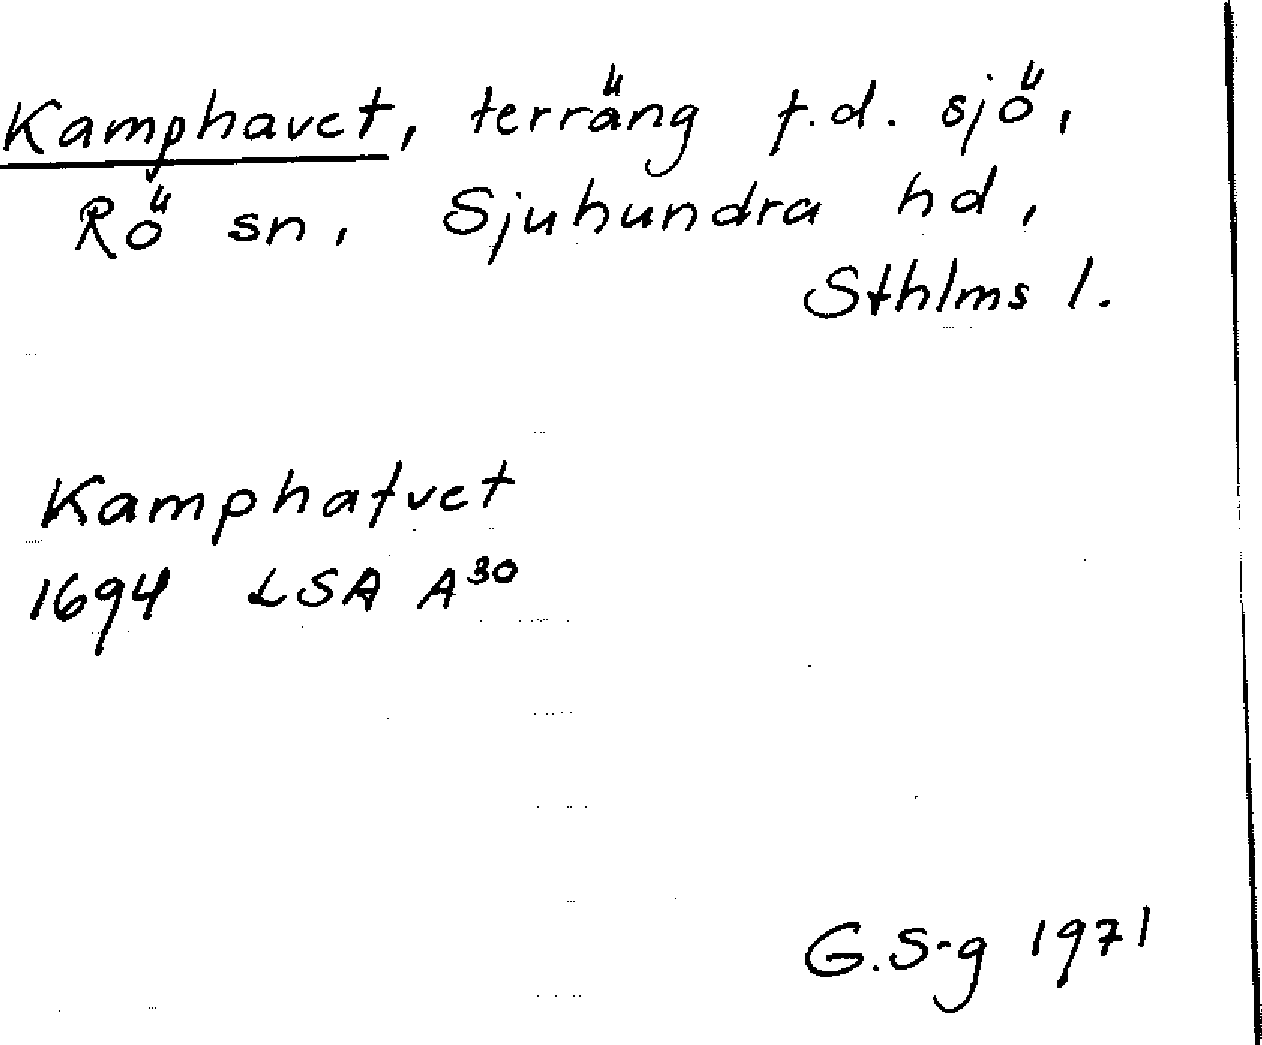 Kamphavet, terräng f.d. sjö,
Rö sn, Sjuhundra hd,
Sthlms l.
Kamphafvet
1694 LSA A³⁰
G.S-g 1971